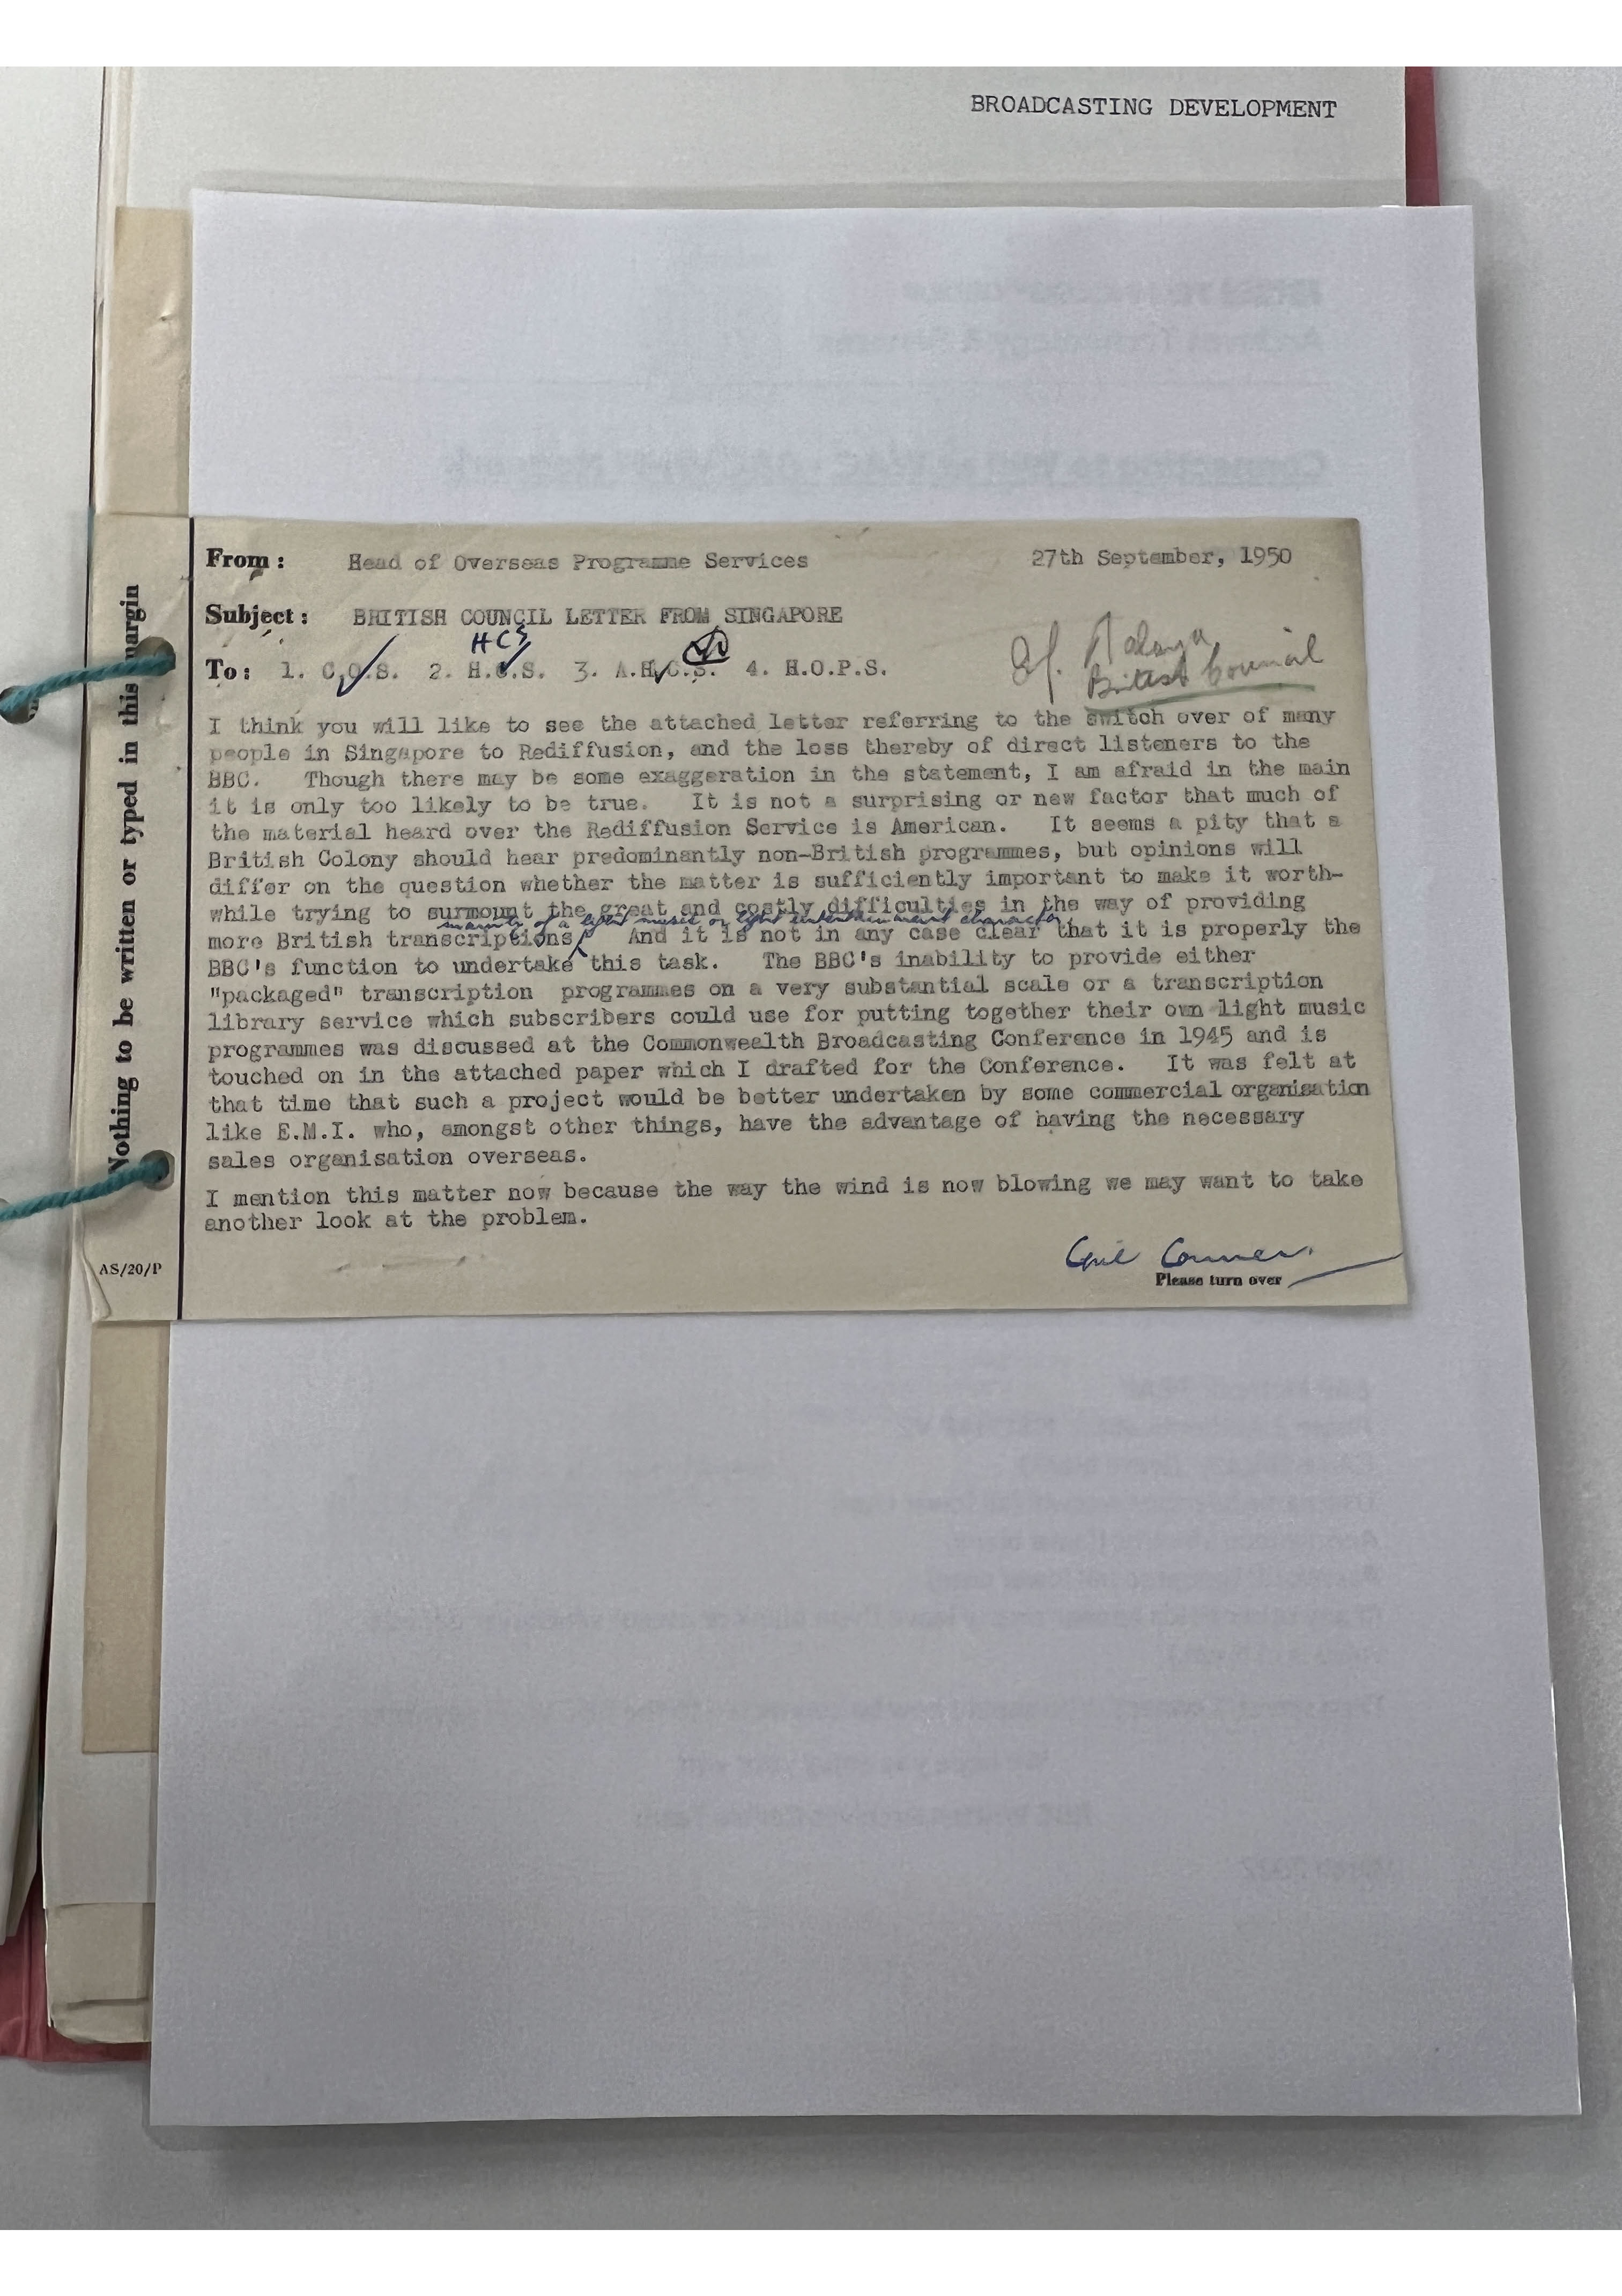 BROADCASTING DEVELOPMENT
From: Head of Overseas Programme Services 27th September, 1950
Subject: BRITISH COUNCIL LETTER FROM SINGAPORE
HCS
To: 1. C.O.S. 2. H.C.S. 3. A.H.C.S. 4. H.O.P.S.
Malaya
British Council
I think you will like to see the attached letter referring to the switch over of many
people in Singapore to Rediffusion, and the loss thereby of direct listeners to the
BBC. Though there may be some exaggeration in the statement, I am afraid in the main
it is only too likely to be true. It is not a surprising or new factor that much of
the material heard over the Rediffusion Service is American. It seems a pity that a
British Colony should hear predominantly non-British programmes, but opinions will
differ on the question whether the matter is sufficiently important to make it worth-
while trying to surmount the great and costly difficulties in the way of providing
mainly of a light music or light entertainment character.
more British transcriptions And it is not in any case clear that it is properly the
BBC's function to undertake this task. The BBC's inability to provide either
"packaged" transcription programmes on a very substantial scale or a transcription
library service which subscribers could use for putting together their own light music
programmes was discussed at the Commonwealth Broadcasting Conference in 1945 and is
touched on in the attached paper which I drafted for the Conference. It was felt at
that time that such a project would be better undertaken by some commercial organisation
like E.M.I. who, amongst other things, have the advantage of having the necessary
sales organisation overseas.
I mention this matter now because the way the wind is now blowing we may want to take
another look at the problem.
Please turn over
AS/20/P
Nothing to be written or typed in this margin